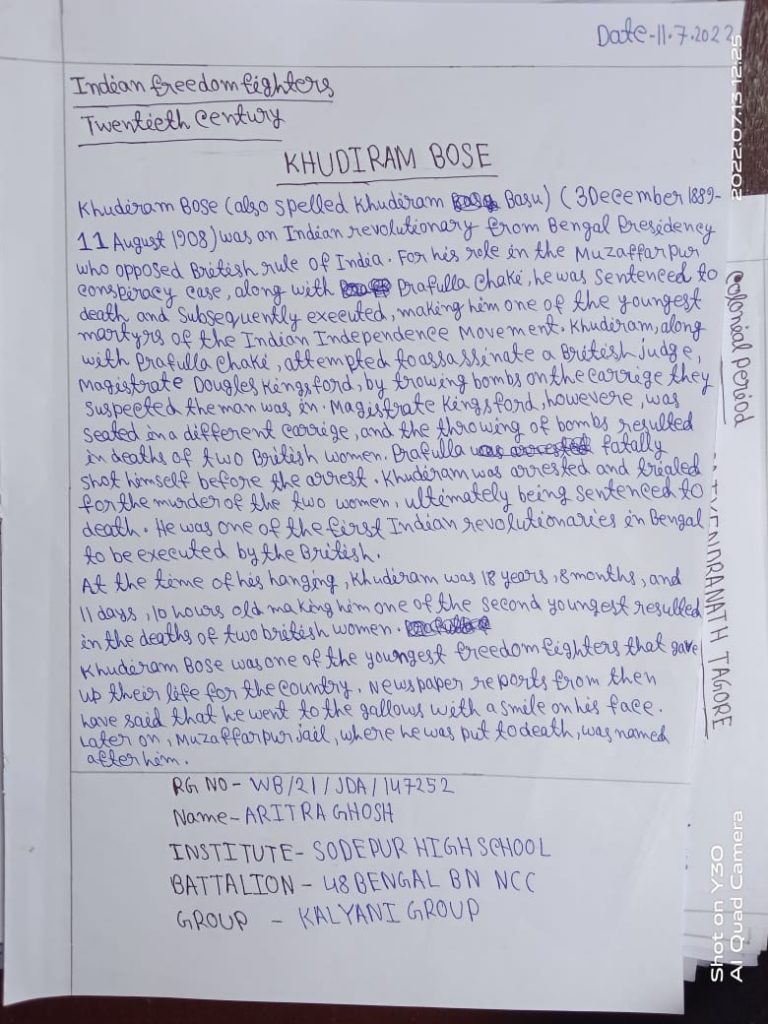 Date-11.7.2022
Indian freedom fighters
Twentieth Century
KHUDIRAM BOSE
Khudiram Bose (also spelled Khudiram Basu) (3December 1889-
11 August 1908) was an Indian revolutionary from Bengal Presidency
who opposed British rule of India. For his role in the Muzaffarpur
conspiracy case, along with Prafulla Chaki, he was sentenced to
death and subsequently executed, making him one of the youngest
martyrs of the Indian Independence Movement. Khudiram, along
with Prafulla Chaki, attempted to assassinate a British judge,
Magistrate Dougles Kingsford, by trowing bombs on the carrige they
suspected the man was in. Magistrate Kingsford, howevere, was
seated in a different carrige, and the throwing of bombs resulted
in deaths of two British women. Prafulla was arrested fatally
shot himself before the arrest. Khudiram was arrested and trialed
for the murder of the two women, ultimately being sentenced to
death. He was one of the first Indian revolutionaries in Bengal
to be executed by the British.
At the time of his hanging, Khudiram was 18 years, 8 months, and
11 days, 10 hours old making him one of the second youngest resulted
in the deaths of two british women.
Khudiram Bose was one of the youngest freedom fighters that gave
up their life for the country. Newspaper reports from then
have said that he went to the gallows with a smile on his face.
Later on, Muzaffarpur jail, where he was put to death, was named
after him.
RG NO- WB/21/JDA/147252
Name- ARITRA GHOSH
INSTITUTE- SODEPUR HIGH SCHOOL
BATTALION - 48 BENGAL BN NCC
GROUP - KALYANI GROUP
Colonial period
ENDRANATH TAGORE
2022.07.13 12:25
Shot on Y30
AI Quad Camera